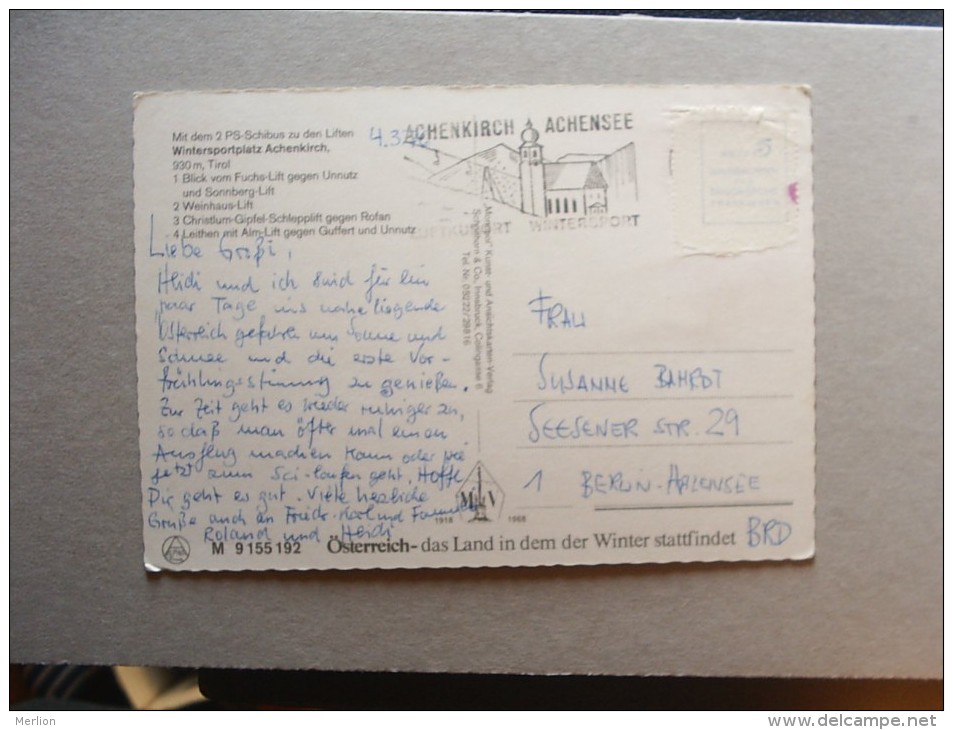 Mit dem 2 PS-Schibus zu den Liften
Wintersportplatz Achenkirch,
930 m, Tirol
1 Blick vom Fuchs-Lift gegen Unnutz
und Sonnberg-Lift
2 Weinhaus-Lift
3 Christlum-Gipfel-Schlepplift gegen Rofan
4 Leithen mit Alm-Lift gegen Guffert und Unnutz
ACHENKIRCH ACHENSEE
LUFTKURORT WINTERSPORT
Liebe Großi,
Heidi und ich sind für ein
paar Tage ins naheliegende
Österreich gefahren um Sonne und
Schnee und die erste Vor-
frühlingsstimmung zu genießen.
Zur Zeit geht es wieder ruhiger zu,
so daß man öfter mal einen
Ausflug machen kann oder wie
jetzt zum Sci-laufen geht. Hoffe
Dir geht es gut. Viele herzliche
Grüße auch an und
Roland und Heidi
Kunst- und Ansichtskarten-Verlag
& Co., Innsbruck,
Tel. Nr. 05222/29816
FRAU
SUSANNE BAHRDT
SEESENER STR. 29
1 BERLIN-HALENSEE
BRD
M V
1918 1968
M 9 155 192
Österreich - das Land in dem der Winter stattfindet
Merlion
http://www.delcampe.net